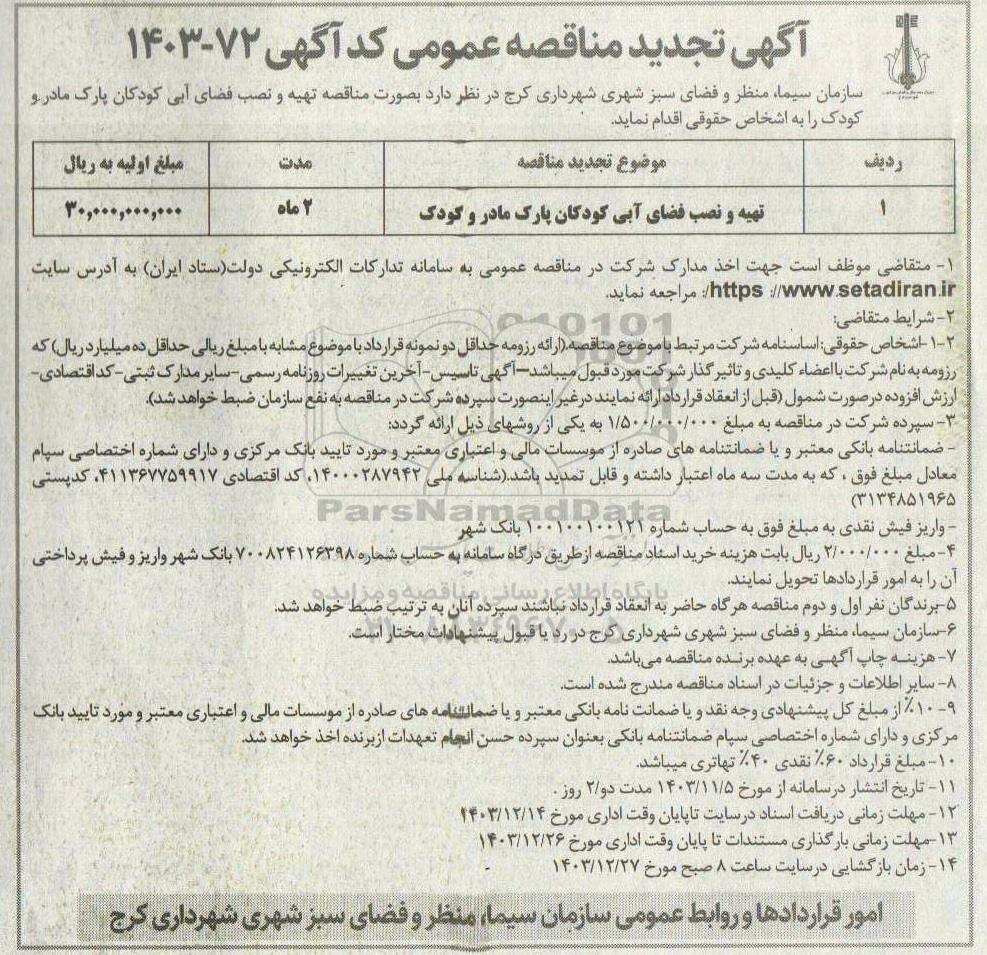 آگهی تجدید مناقصه عمومی کد آگهی ۷۲-۱۴۰۳
سازمان سیما، منظر و فضای سبز شهری شهرداری کرج در نظر دارد بصورت مناقصه تهیه و نصب فضای آبی کودکان پارک مادر و
کودک را به اشخاص حقوقی اقدام نماید.
ردیف موضوع تجدید مناقصه مدت مبلغ اولیه به ریال
۱ تهیه و نصب فضای آبی کودکان پارک مادر و کودک ۲ ماه ۳۰,۰۰۰,۰۰۰,۰۰۰
۱- متقاضی موظف است جهت اخذ مدارک شرکت در مناقصه عمومی به سامانه تدارکات الکترونیکی دولت(ستاد ایران) به آدرس سایت
https ://www.setadiran.ir/: مراجعه نماید.
۲- شرایط متقاضی:
۲-۱-اشخاص حقوقی: اساسنامه شرکت مرتبط با موضوع مناقصه.(ارائه رزومه حداقل دو نمونه قرارداد با موضوع مشابه با مبلغ ریالی حداقل ده میلیارد ریال) که
رزومه به نام شرکت با اعضاء کلیدی و تاثیر گذار شرکت مورد قبول میباشد–آگهی تاسیس-آخرین تغییرات روزنامه رسمی-سایر مدارک ثبتی-کد اقتصادی-
ارزش افزوده درصورت شمول (قبل از انعقاد قرارداد ارائه نمایند درغیر اینصورت سپرده شرکت در مناقصه به نفع سازمان ضبط خواهد شد).
۳- سپرده شرکت در مناقصه به مبلغ ۱/۵۰۰/۰۰۰/۰۰۰ به یکی از روشهای ذیل ارائه گردد:
- ضمانتنامه بانکی معتبر و یا ضمانتنامه های صادره از موسسات مالی و اعتباری معتبر و مورد تایید بانک مرکزی و دارای شماره اختصاصی سپام
معادل مبلغ فوق ، که به مدت سه ماه اعتبار داشته و قابل تمدید باشد.(شناسه ملی ۱۴۰۰۰۲۸۷۹۴۲، کد اقتصادی ۴۱۱۳۶۷۷۵۹۹۱۷، کدپستی
۳۱۳۴۸۵۱۹۶۵)
- واریز فیش نقدی به مبلغ فوق به حساب شماره ۱۰۰۱۰۰۱۰۰۱۲۱ بانک شهر
۴- مبلغ ۲/۰۰۰/۰۰۰ ریال بابت هزینه خرید اسناد مناقصه ازطریق درگاه سامانه به حساب شماره ۷۰۰۸۲۴۱۲۶۳۹۸ بانک شهر واریز و فیش پرداختی
آن را به امور قراردادها تحویل نمایند.
۵-برندگان نفر اول و دوم مناقصه هرگاه حاضر به انعقاد قرارداد نباشند سپرده آنان به ترتیب ضبط خواهد شد.
۶-سازمان سیما، منظر و فضای سبز شهری شهرداری کرج در رد یا قبول پیشنهادات مختار است.
۷- هزینه چاپ آگهی به عهده برنده مناقصه می‌باشد.
۸- سایر اطلاعات و جزئیات در اسناد مناقصه مندرج شده است.
۹- ۱۰٪ از مبلغ کل پیشنهادی وجه نقد و یا ضمانت نامه بانکی معتبر و یا ضمانتنامه های صادره از موسسات مالی و اعتباری معتبر و مورد تایید بانک
مرکزی و دارای شماره اختصاصی سپام ضمانتنامه بانکی بعنوان سپرده حسن انجام تعهدات ازبرنده اخذ خواهد شد.
۱۰- مبلغ قرارداد ۶۰٪ نقدی ۴۰٪ تهاتری میباشد.
۱۱- تاریخ انتشار درسامانه از مورخ ۱۴۰۳/۱۱/۵ مدت دو/۲ روز .
۱۲- مهلت زمانی دریافت اسناد درسایت تاپایان وقت اداری مورخ ۱۴۰۳/۱۲/۱۴
۱۳-مهلت زمانی بارگذاری مستندات تا پایان وقت اداری مورخ ۱۴۰۳/۱۲/۲۶
۱۴- زمان بازگشایی درسایت ساعت ۸ صبح مورخ ۱۴۰۳/۱۲/۲۷
امور قراردادها و روابط عمومی سازمان سیما، منظر و فضای سبز شهری شهرداری کرج
ParsNamadData
پایگاه اطلاع رسانی مناقصه و مزایده